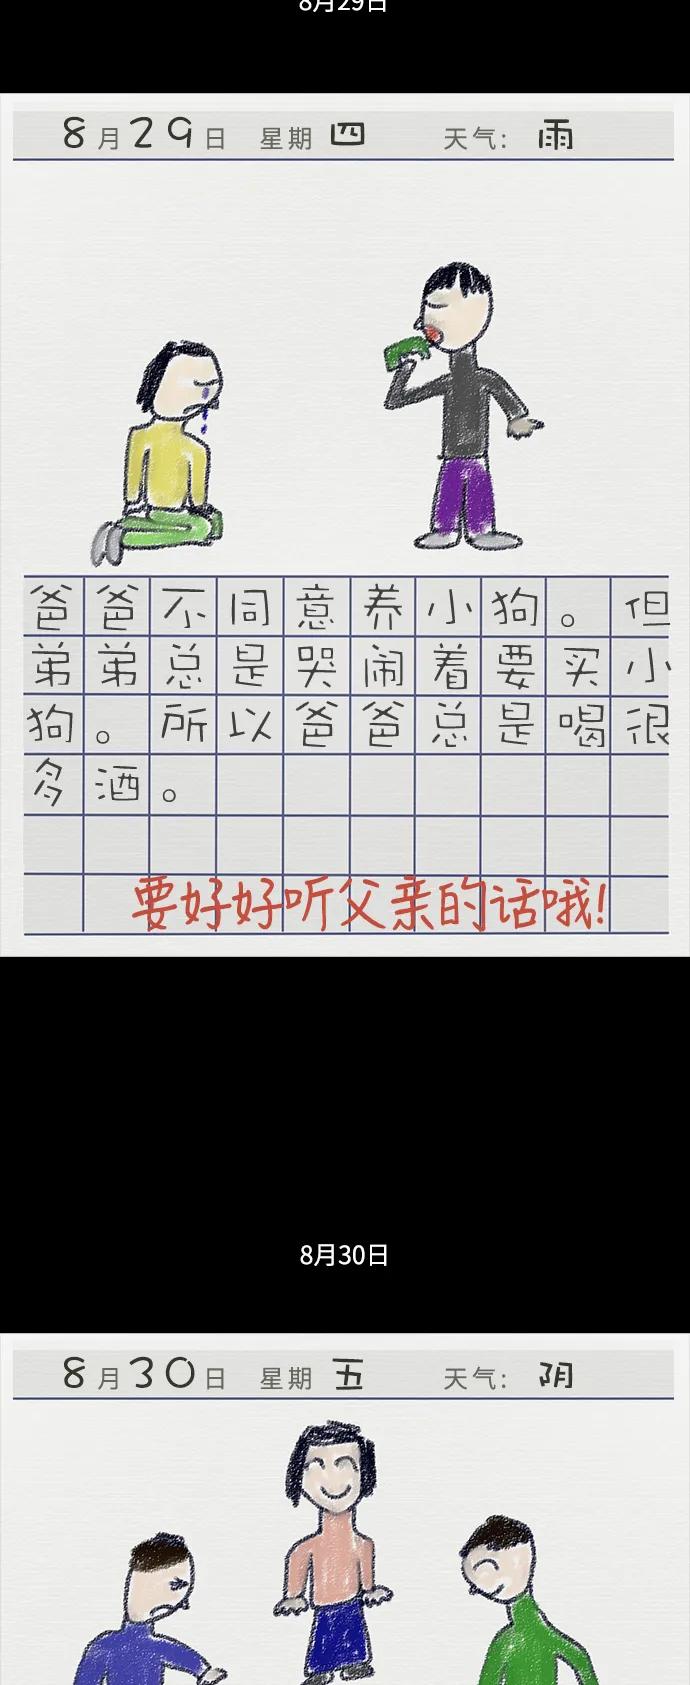 8月29日
8月29日 星期四 天气: 雨
爸爸不同意养小狗。但
弟弟总是哭闹着要买小
狗。所以爸爸总是喝很
多酒。
要好好听父亲的话哦!
8月30日
8月30日 星期五 天气: 阴